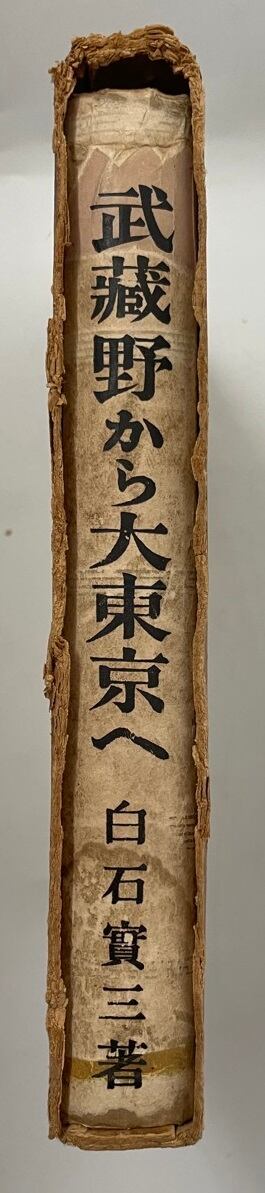 武藏野から大東京へ
白石實三著